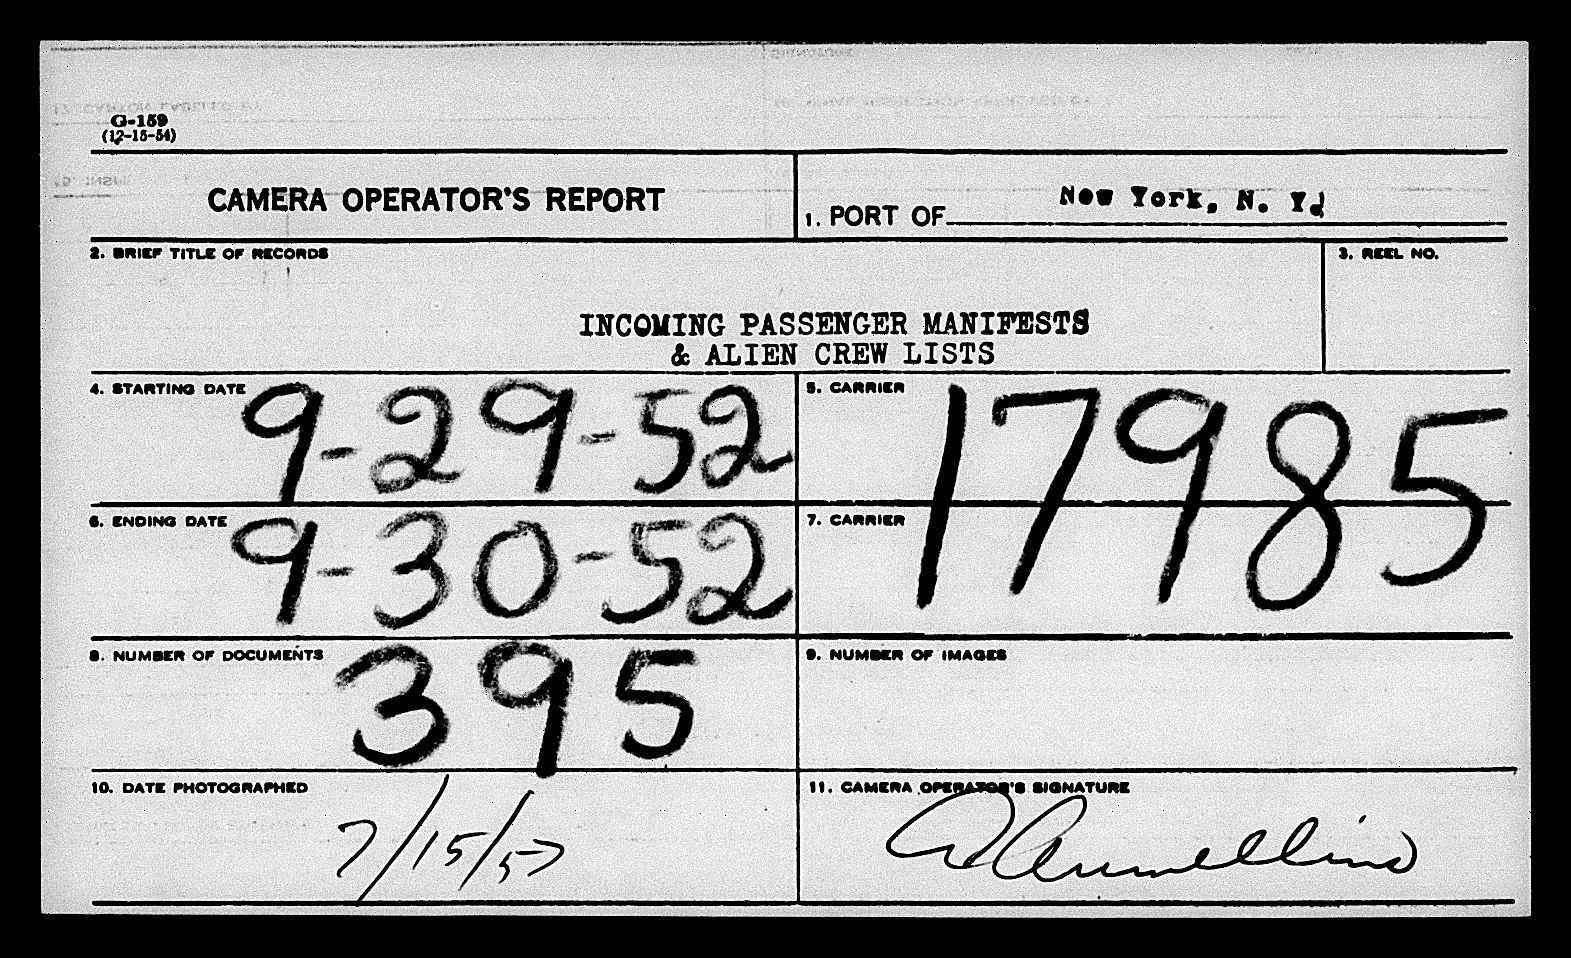 G-159
(12-15-54)
CAMERA OPERATOR'S REPORT
1. PORT OF New York, N. Y.
2. BRIEF TITLE OF RECORDS
3. REEL NO.
INCOMING PASSENGER MANIFESTS
& ALIEN CREW LISTS
4. STARTING DATE 9-29-52
5. CARRIER
17985
6. ENDING DATE 9-30-52
7. CARRIER
8. NUMBER OF DOCUMENTS 395
9. NUMBER OF IMAGES
10. DATE PHOTOGRAPHED
7/15/57
11. CAMERA OPERATOR'S SIGNATURE